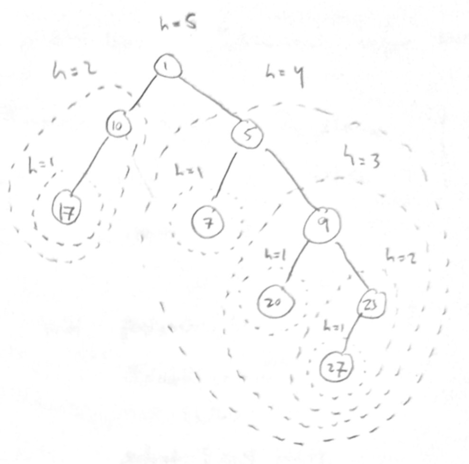 h=5
h=2
1
h=4
10
5
h=3
h=1
h=1
17
7
9
h=1
h=2
20
23
h=1
27